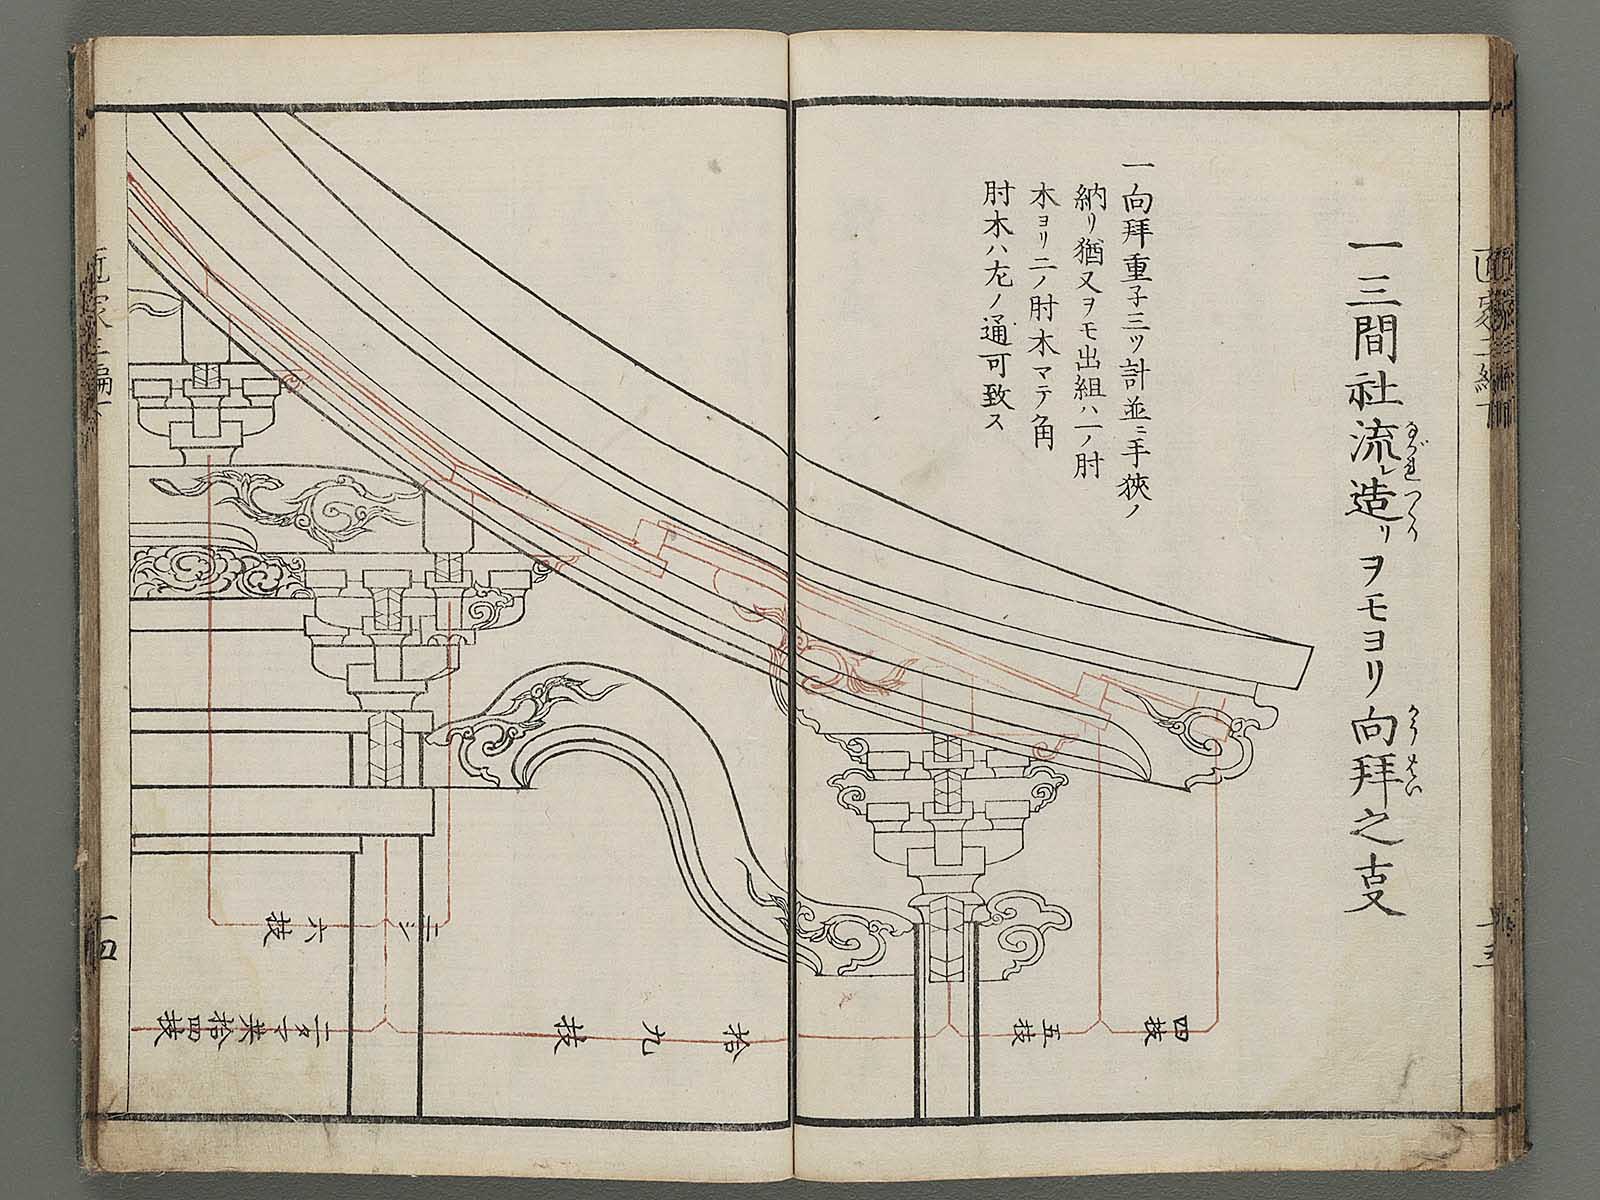 一三間社流レ造リヲモヨリ向拜之支
ながれつくり
かうはい
一向拜重子三ツ計並ニ手狹ノ
納リ猶又ヲモ出組ハ一ノ肘
木ヨリ二ノ肘木マテ角
肘木ハ左ノ通可致ス
四枝
五枝
拾九枝
六枝
十四